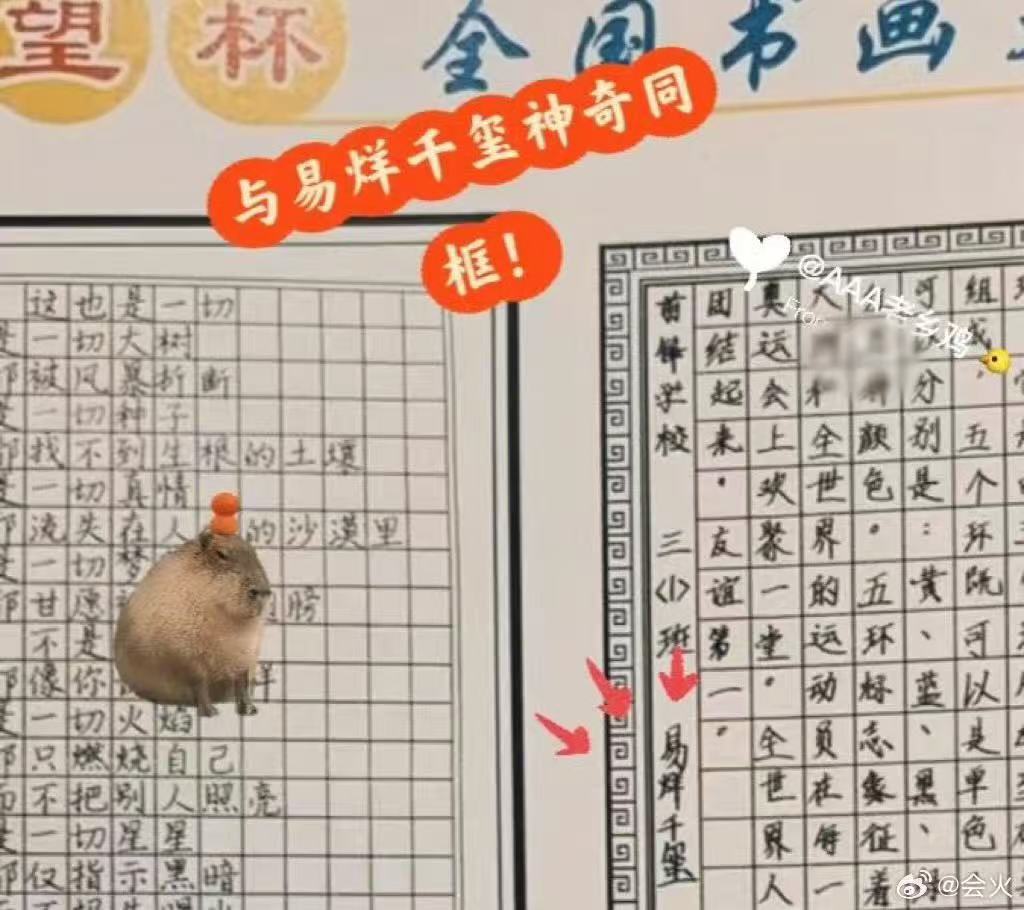 望杯 全国书画
与易烊千玺神奇同
框！
@AAA老乡鸡
From
这也是一切
一切大树
被风暴折断
一切种子
找不到生根的土壤
一切真情
流失在人的沙漠里
一切梦
甘愿 膀
不是
像你 样
一切火焰
只燃烧自己
不把别人照亮
一切星星
仅指示黑暗
组成，五个环既可以是单色
分别是：黄、蓝、黑、
颜色。五环标志象征着
和全世界的运动员在每一
奥运会上欢聚一堂。全世界人
团结起来，友谊第一。
学校 三(1)班 易烊千玺
@会火